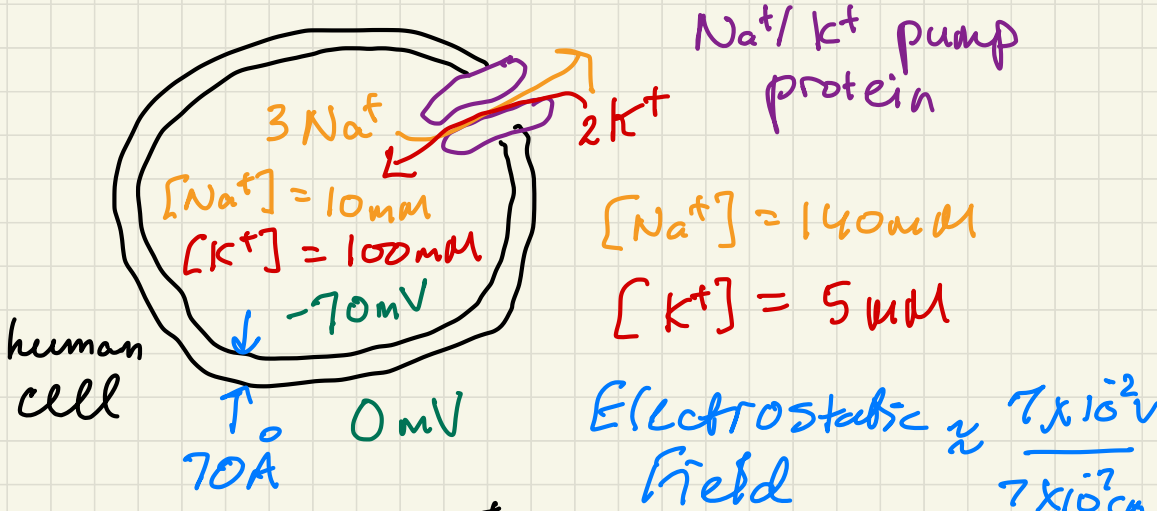 Na⁺/K⁺ pump
protein
3 Na⁺
2K⁺
[Na⁺] = 10mM
[K⁺] = 100mM
-70mV
[Na⁺] = 140mM
[K⁺] = 5mM
human
cell
70Å
0mV
Electrostatic ≈ 7×10⁻²V
Field 7×10⁻⁷cm